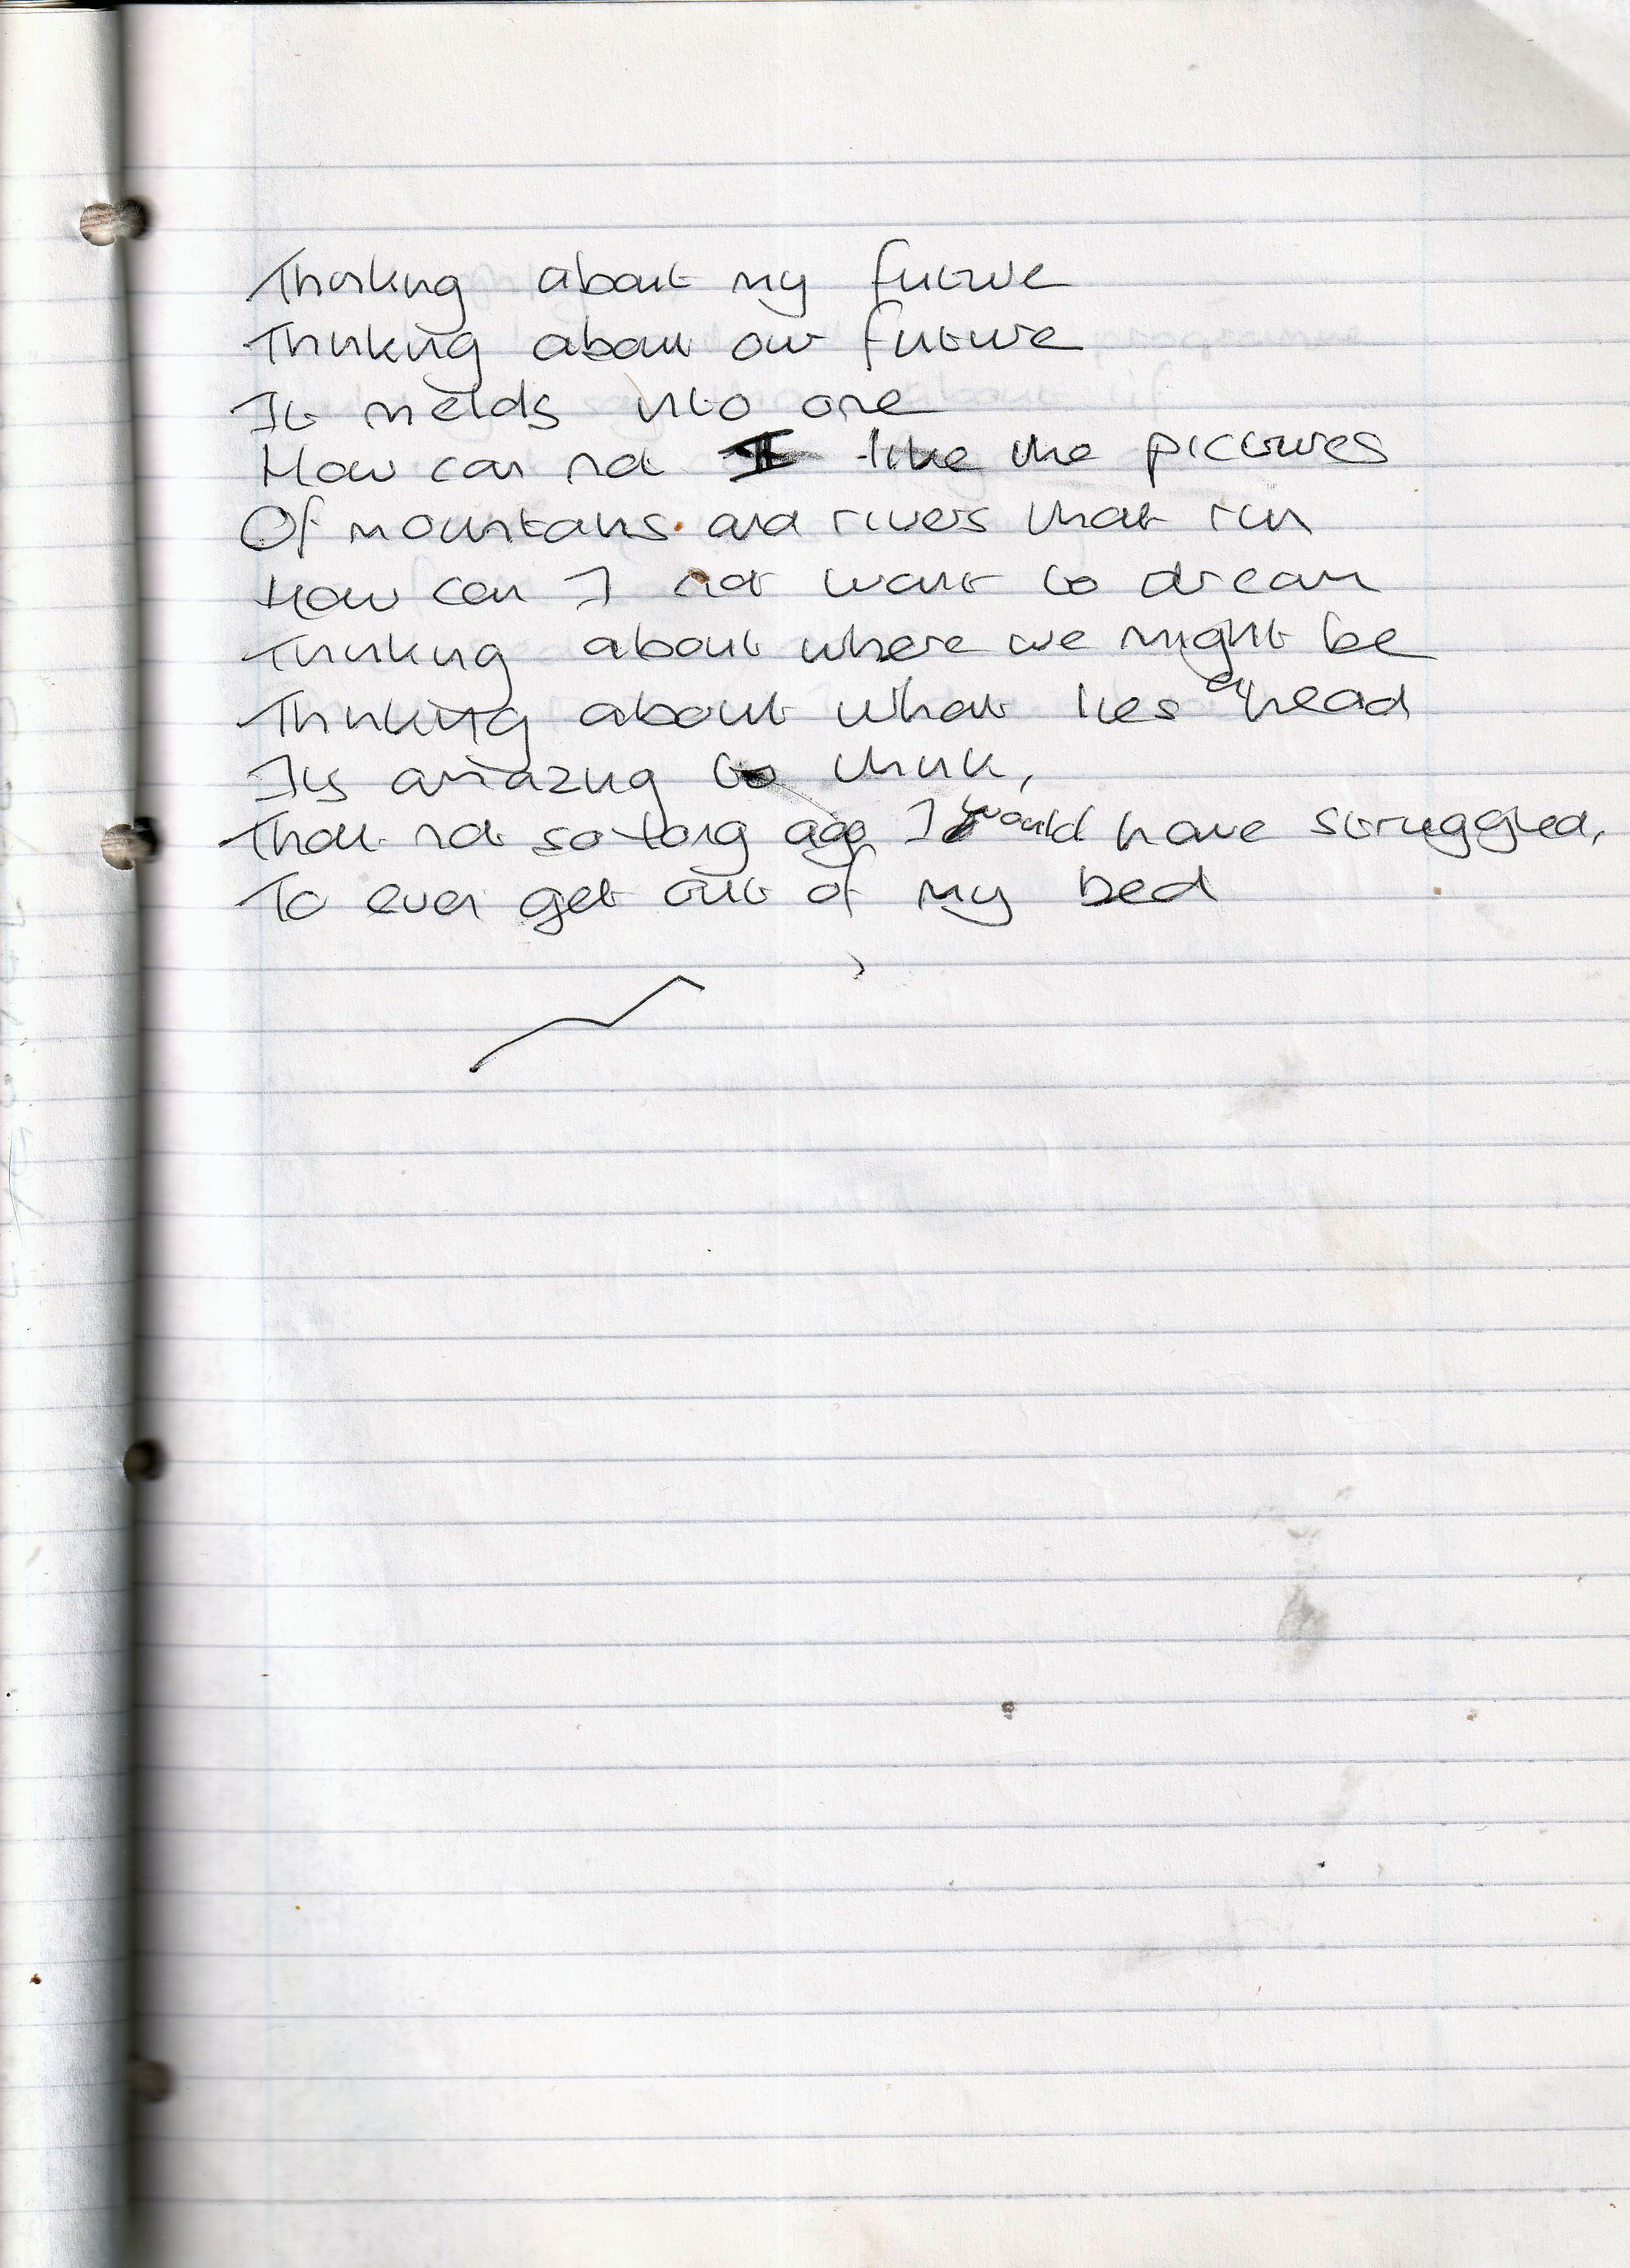 Thinking about my future
Thinking about our future
It melds into one
How can not I like the pictures
Of mountains and rivers that run
How can I not want to dream
Thinking about where we might be
Thinking about what lies ahead
Its amazing to think,
That not so long ago I would have struggled,
To even get out of my bed